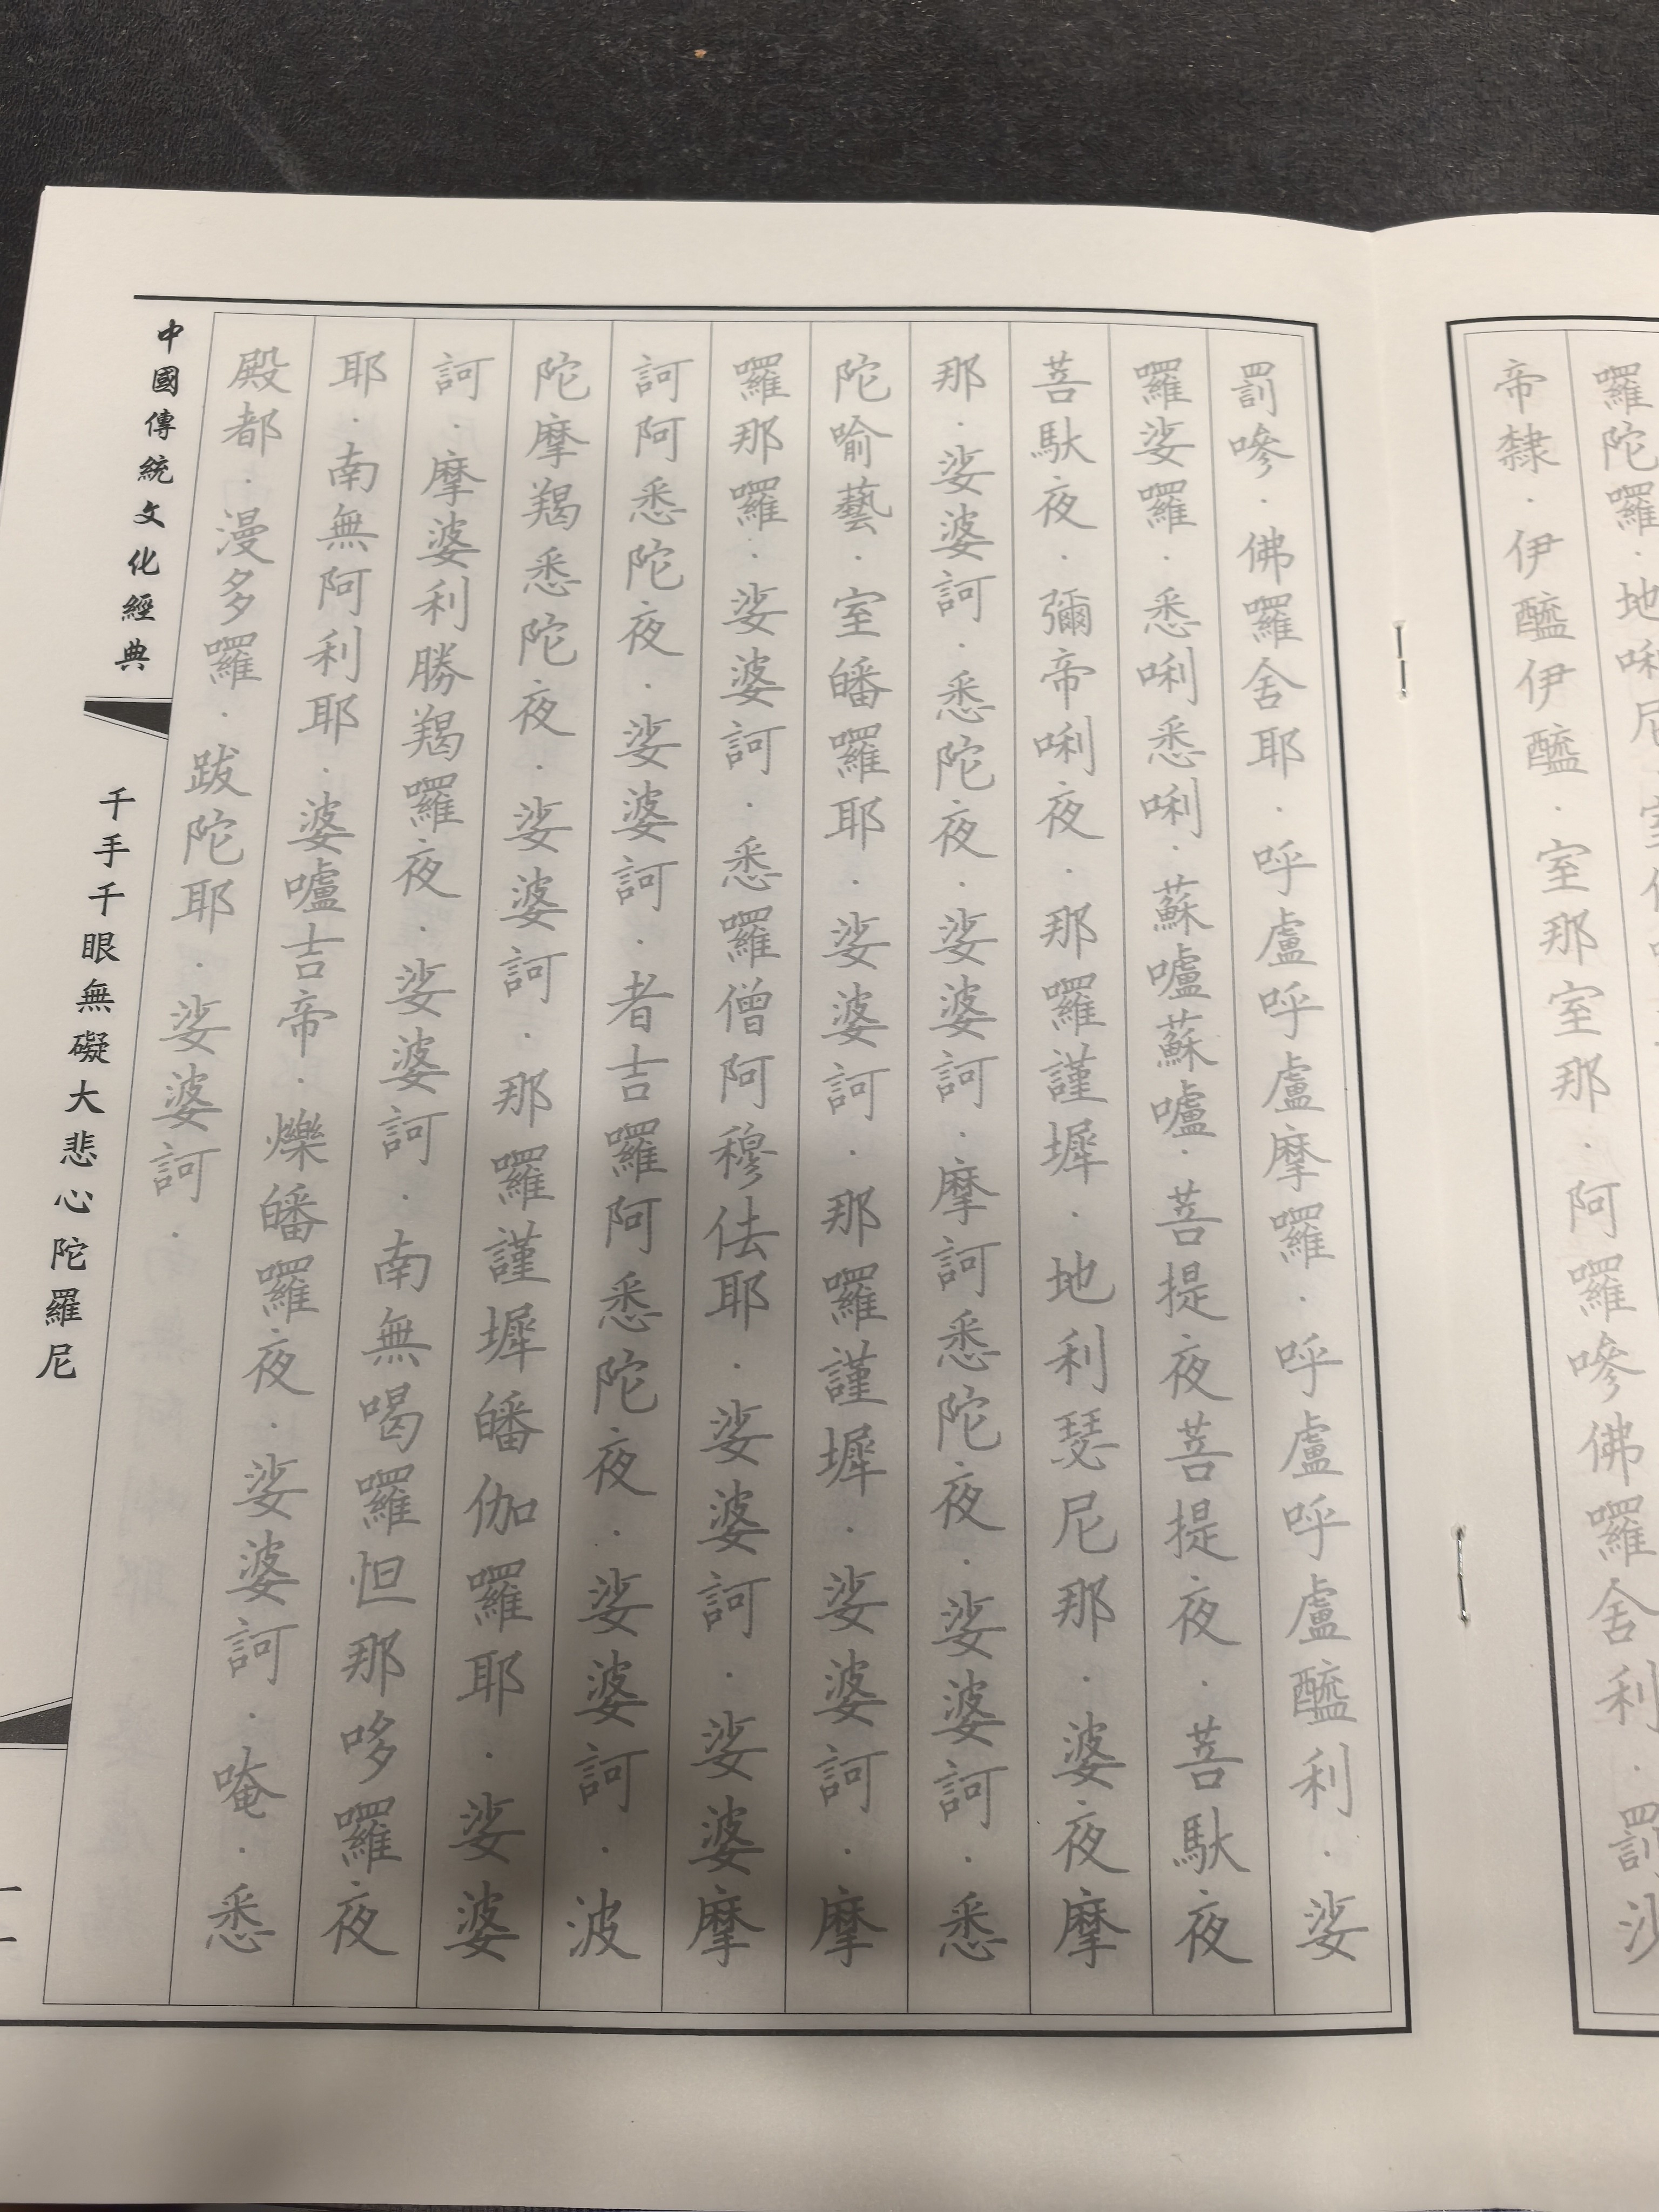 囉陀囉·地唎尼
帝隸·伊醯伊醯·室那室那·阿囉嘇佛囉舍利·罰沙
罰嘇·佛囉舍耶·呼盧呼盧摩囉·呼盧呼盧醯利·娑
囉娑囉·悉唎悉唎·蘇嚧蘇嚧·菩提夜菩提夜·菩馱夜
菩馱夜·彌帝唎夜·那囉謹墀·地利瑟尼那·婆夜摩
那·娑婆訶·悉陀夜·娑婆訶·摩訶悉陀夜·娑婆訶·悉
陀喻藝·室皤囉耶·娑婆訶·那囉謹墀·娑婆訶·摩
囉那囉·娑婆訶·悉囉僧阿穆佉耶·娑婆訶·娑婆摩
訶阿悉陀夜·娑婆訶·者吉囉阿悉陀夜·娑婆訶·波
陀摩羯悉陀夜·娑婆訶·那囉謹墀皤伽囉耶·娑婆
訶·摩婆利勝羯囉夜·娑婆訶·南無喝囉怛那哆囉夜
耶·南無阿利耶·婆嚧吉帝·爍皤囉夜·娑婆訶·唵·悉
殿都·漫多囉·跋陀耶·娑婆訶·
中國傳統文化經典
千手千眼無礙大悲心陀羅尼